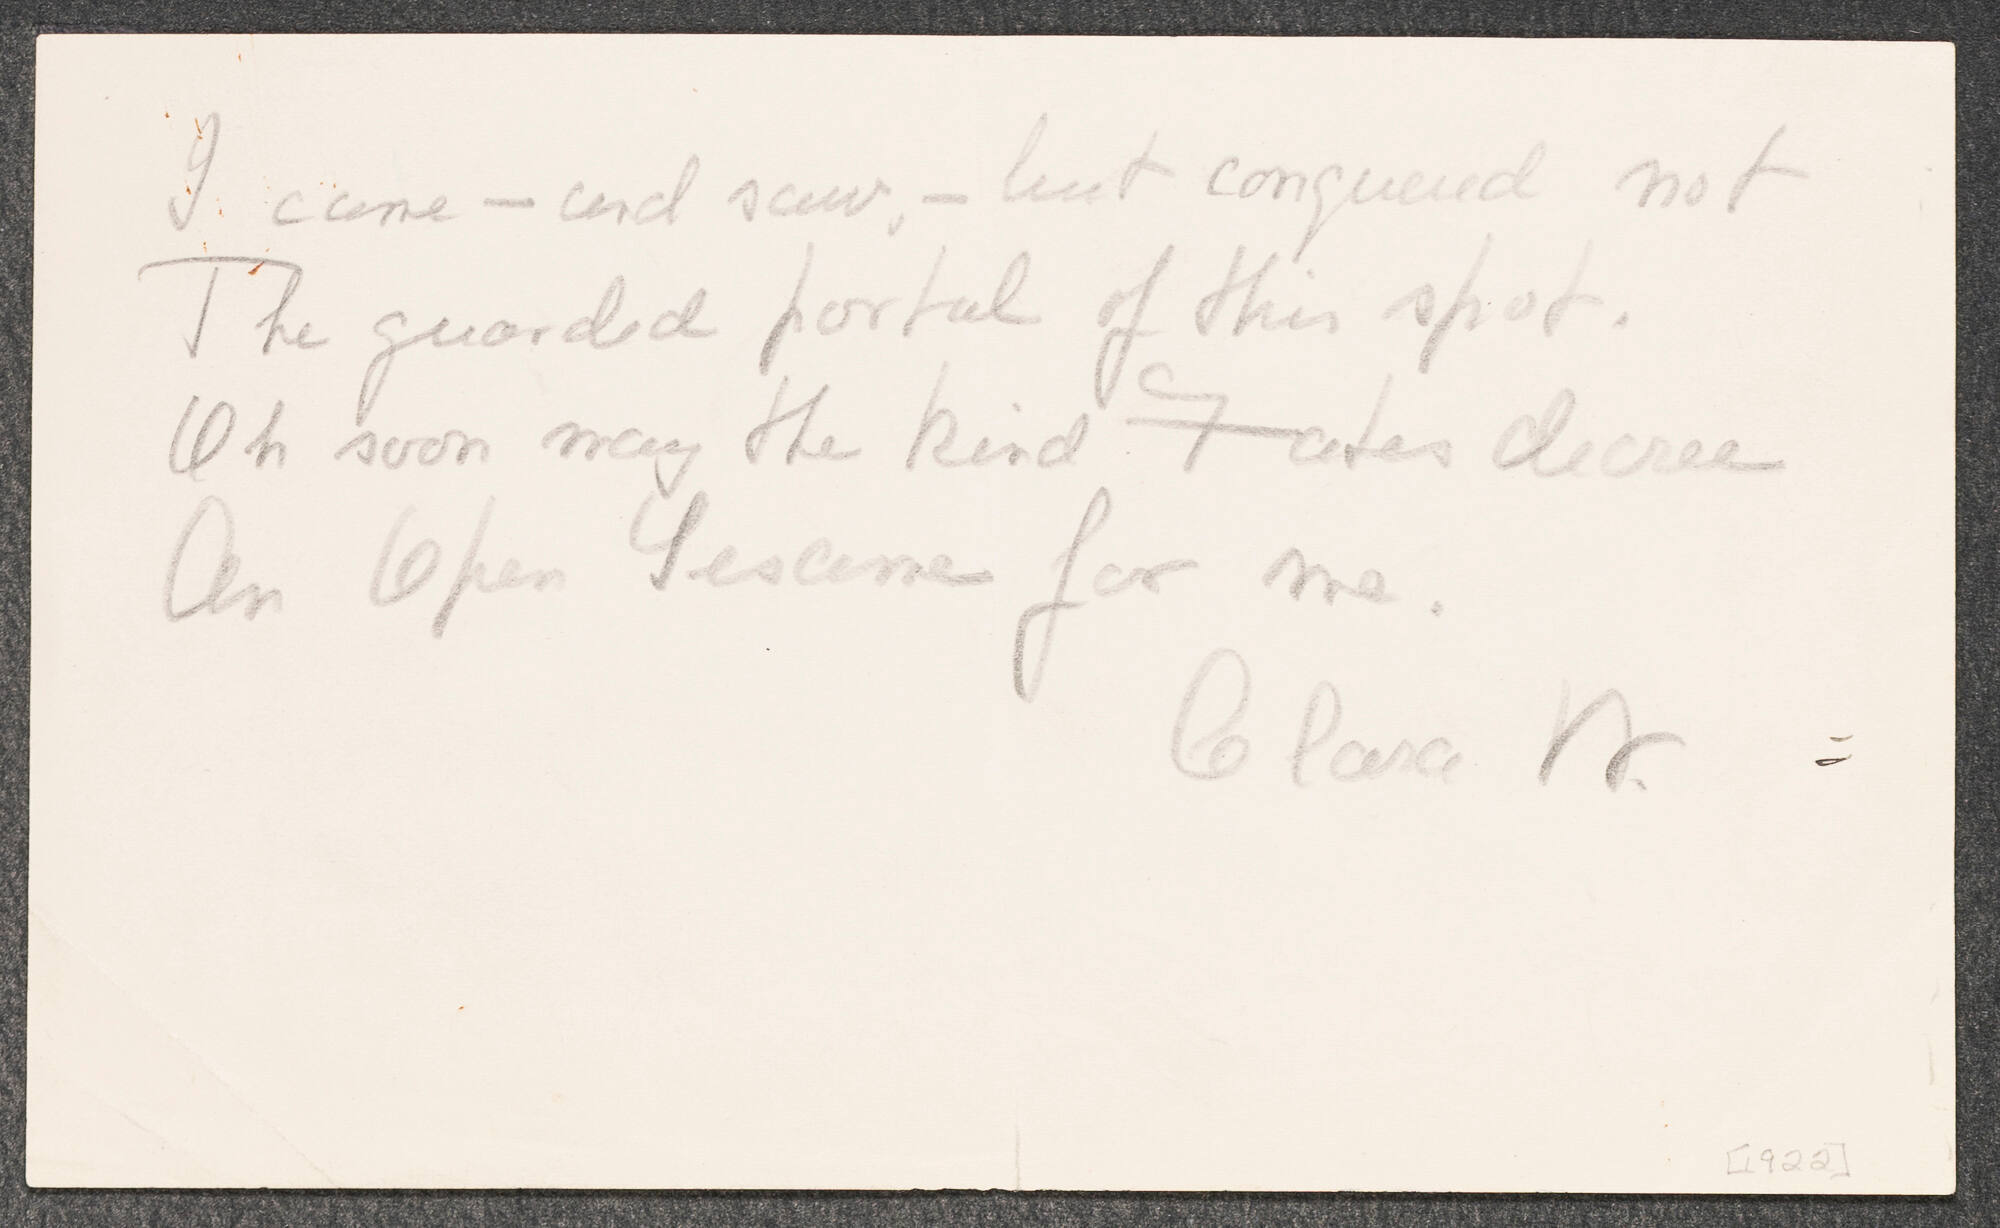 I came – and saw, – but conquered not
The guarded portal of this spot.
Oh soon may the kind Fates decree
An Open Sesame for me.
Clara W. =
[1922]